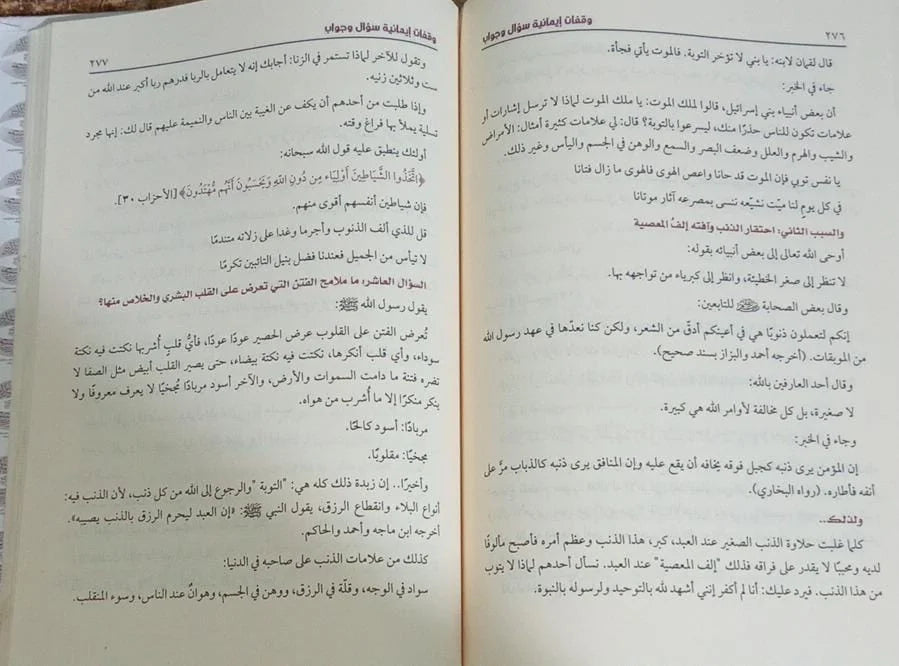 ٢٧٦
وقفات إيمانية سؤال وجواب
قال لقمان لابنه: يا بني لا تؤخر التوبة. فالموت يأتي فجأة.
جاء في الخبر:
أن بعض أنبياء بني إسرائيل، قالوا لملك الموت: يا ملك الموت لماذا لا ترسل إشارات أو
علامات تكون للناس حذرًا منك، ليسرعوا بالتوبة؟ قال: لي علامات كثيرة أمثال: الأمراض
والشيب والهرم والعلل وضعف البصر والسمع والوهن في الجسم واليأس وغير ذلك.
يا نفس توبي فإن الموت قد حانا واعص الهوى فالهوى ما زال فتانا
في كل يوم لنا ميّت نشيّعه ننسى بمصرعه آثار موتانا
والسبب الثاني: احتقار الذنب وآفته إلفُ المعصية
أوحى الله تعالى إلى بعض أنبيائه بقوله:
لا تنظر إلى صغر الخطيئة، وانظر إلى كبرياء من تواجهه بها.
وقال بعض الصحابة ﷺ للتابعين:
إنكم لتعملون ذنوبًا هي في أعينكم أدقّ من الشعر، ولكن كنا نعدّها في عهد رسول الله
من الموبقات. (أخرجه أحمد والبزاز بسند صحيح).
وقال أحد العارفين بالله:
لا صغيرة، بل كل مخالفة لأوامر الله هي كبيرة.
وجاء في الخبر:
إن المؤمن يرى ذنبه كجبل فوقه يخافه أن يقع عليه وإن المنافق يرى ذنبه كالذباب مرَّ على
أنفه فأطاره. (رواه البخاري).
ولذلك..
كلما غلبت حلاوة الذنب الصغير عند العبد، كبر، هذا الذنب وعظم أمره فأصبح مألوفًا
لديه ومحببًا لا يقدر على فراقه فذلك "إلف المعصية" عند العبد. نسأل أحدهم لماذا لا يتوب
من هذا الذنب. فيرد عليك: أنا لم أكفر إنني أشهد لله بالتوحيد ولرسوله بالنبوة.
وقفات إيمانية سؤال وجواب
٢٧٧
وتقول للآخر لماذا تستمر في الزنا: أجابك إنه لا يتعامل بالربا فدرهم ربا أكبر عند الله من
ست وثلاثين زنيه.
وإذا طلبت من أحدهم أن يكف عن الغيبة بين الناس والنميمة عليهم قال لك: إنها مجرد
تسلية يملأ بها فراغ وقته.
أولئك ينطبق عليه قول الله سبحانه:
﴿اتَّخَذُوا الشَّيَاطِينَ أَوْلِيَاءَ مِن دُونِ اللَّهِ وَيَحْسَبُونَ أَنَّهُم مُّهْتَدُونَ﴾ [الأحزاب ٣٠].
فإن شياطين أنفسهم أقوى منهم.
قل للذي ألف الذنوب وأجرما وغدا على زلاته متندمًا
لا تيأس من الجميل فعندنا فضل بنيل التائبين تكرمًا
السؤال العاشر: ما ملامح الفتن التي تعرض على القلب البشري والخلاص منها؟
يقول رسول الله ﷺ:
تُعرض الفتن على القلوب عرض الحصير عودًا عودًا، فأيُّ قلبٍ أُشربها نكتت فيه نكتة
سوداء، وأي قلب أنكرها، نكتت فيه نكتة بيضاء، حتى يصير القلب أبيض مثل الصفا لا
تضره فتنة ما دامت السموات والأرض، والآخر أسود مربادًا مُجخيًا لا يعرف معروفًا ولا
ينكر منكرًا إلا ما أُشرب من هواه.
مربادًا: أسود كالحًا.
مجخيًا: مقلوبًا.
وأخيرًا.. إن زبدة ذلك كله هي: "التوبة" والرجوع إلى الله من كل ذنب، لأن الذنب فيه:
أنواع البلاء وانقطاع الرزق، يقول النبي ﷺ: «إن العبد ليحرم الرزق بالذنب يصيبه».
أخرجه ابن ماجه وأحمد والحاكم.
كذلك من علامات الذنب على صاحبه في الدنيا:
سواد في الوجه، وقلّة في الرزق، ووهن في الجسم، وهوانٌ عند الناس، وسوء المنقلب.